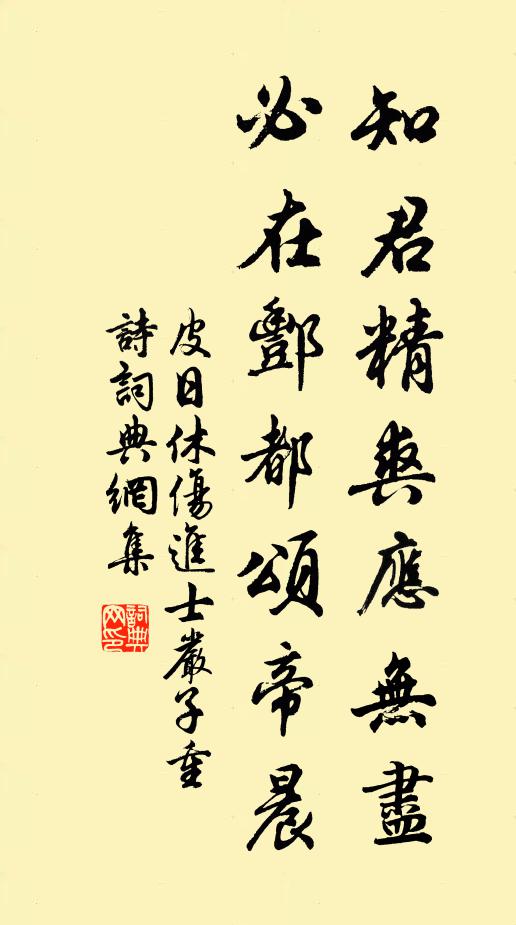 知君精爽應無盡
必在酆都頌帝晨
皮日休傷進士嚴子重
詩詞典網集
詞典網印